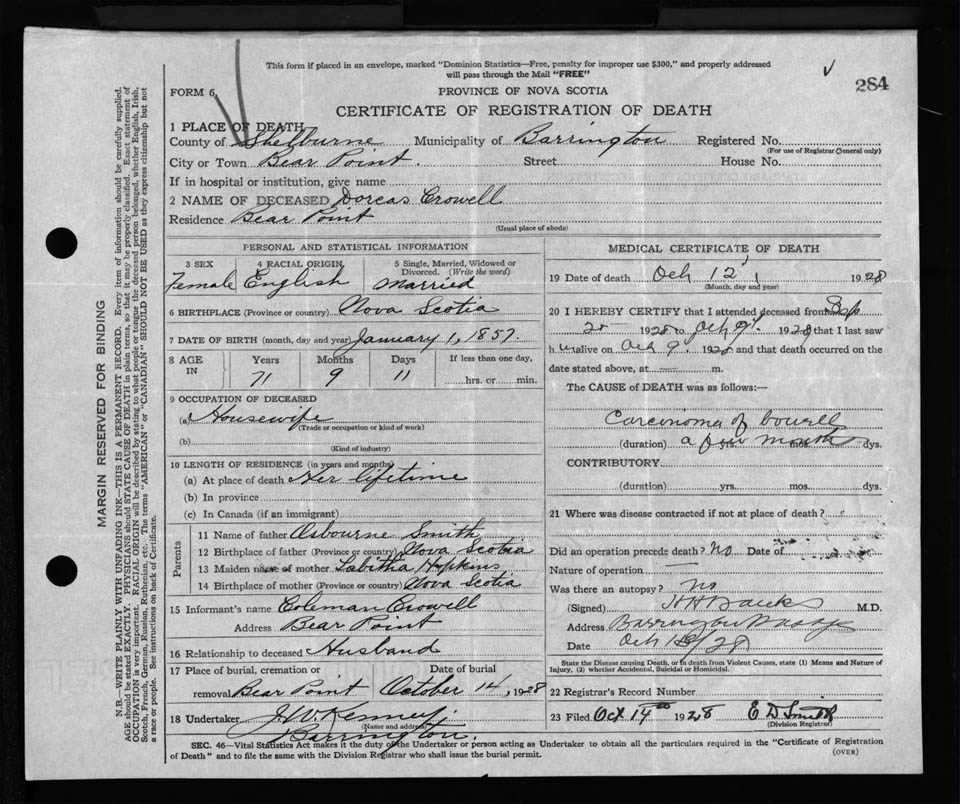 This form if placed in an envelope, marked "Dominion Statistics—Free, penalty for improper use $300," and properly addressed
will pass through the Mail "FREE"
284
FORM 6
PROVINCE OF NOVA SCOTIA
CERTIFICATE OF REGISTRATION OF DEATH
1 PLACE OF DEATH
County of Shelburne Municipality of Barrington Registered No.
(For use of Registrar General only)
City or Town Bear Point. Street House No.
If in hospital or institution, give name
2 NAME OF DECEASED Dorcas Crowell
Residence Bear Point
(Usual place of abode)
PERSONAL AND STATISTICAL INFORMATION
3 SEX 4 RACIAL ORIGIN 5 Single, Married, Widowed or
Divorced. (Write the word)
Female English Married
6 BIRTHPLACE (Province or country) Nova Scotia
7 DATE OF BIRTH (month, day and year) January 1, 1857.
8 AGE IN Years Months Days If less than one day,
71 9 11 hrs. or min.
9 OCCUPATION OF DECEASED
(a) Housewife
(Trade or occupation or kind of work)
(b)
(Kind of industry)
10 LENGTH OF RESIDENCE (in years and months)
(a) At place of death Her lifetime
(b) In province
(c) In Canada (if an immigrant)
Parents
11 Name of father Osbourne Smith
12 Birthplace of father (Province or country) Nova Scotia
13 Maiden name of mother Tabitha Hopkins
14 Birthplace of mother (Province or country) Nova Scotia
15 Informant's name Coleman Crowell
Address Bear Point
16 Relationship to deceased Husband
17 Place of burial, cremation or Date of burial
removal Bear Point October 14, 1928
18 Undertaker H V. Kenney,
(Name and address)
Barrington.
MEDICAL CERTIFICATE OF DEATH
19 Date of death Oct 12, 1928
(Month, day and year)
20 I HEREBY CERTIFY that I attended deceased from Sep
25 1928 to Oct 9 1928 that I last saw
h er alive on Oct 9 1928 and that death occurred on the
date stated above, at m.
The CAUSE of DEATH was as follows:—
Carcinoma of bowell
(duration) a few months yrs. mos. dys.
CONTRIBUTORY
(duration) yrs. mos. dys.
21 Where was disease contracted if not at place of death?
Did an operation precede death? No Date of
Nature of operation —
Was there an autopsy? No
(Signed) H H Banks M.D.
Address Barrington Passage
Date Oct /28
State the Disease causing Death, or in death from Violent Causes, state (1) Means and Nature of
Injury, (2) whether Accidental, Suicidal or Homicidal.
22 Registrar's Record Number
23 Filed Oct 14th 1928 E D Smith
(Division Registrar)
SEC. 46—Vital Statistics Act makes it the duty of the Undertaker or person acting as Undertaker to obtain all the particulars required in the "Certificate of Registration
of Death" and to file the same with the Division Registrar who shall issue the burial permit.
(OVER)
MARGIN RESERVED FOR BINDING
N.B.—WRITE PLAINLY WITH UNFADING INK—THIS IS A PERMANENT RECORD. Every item of information should be carefully supplied.
AGE should be stated EXACTLY. PHYSICIANS should STATE CAUSE OF DEATH in plain terms, so that it may be properly classified. Exact statement of
OCCUPATION is very important. RACIAL ORIGIN will be described by stating to what people or tongue the deceased person belonged, whether English, Irish,
Scotch, French, German, Russian, Ruthenian, etc. The terms "AMERICAN" or "CANADIAN" SHOULD NOT BE USED as they express citizenship but not
a race or people. See instructions on back of Certificate.